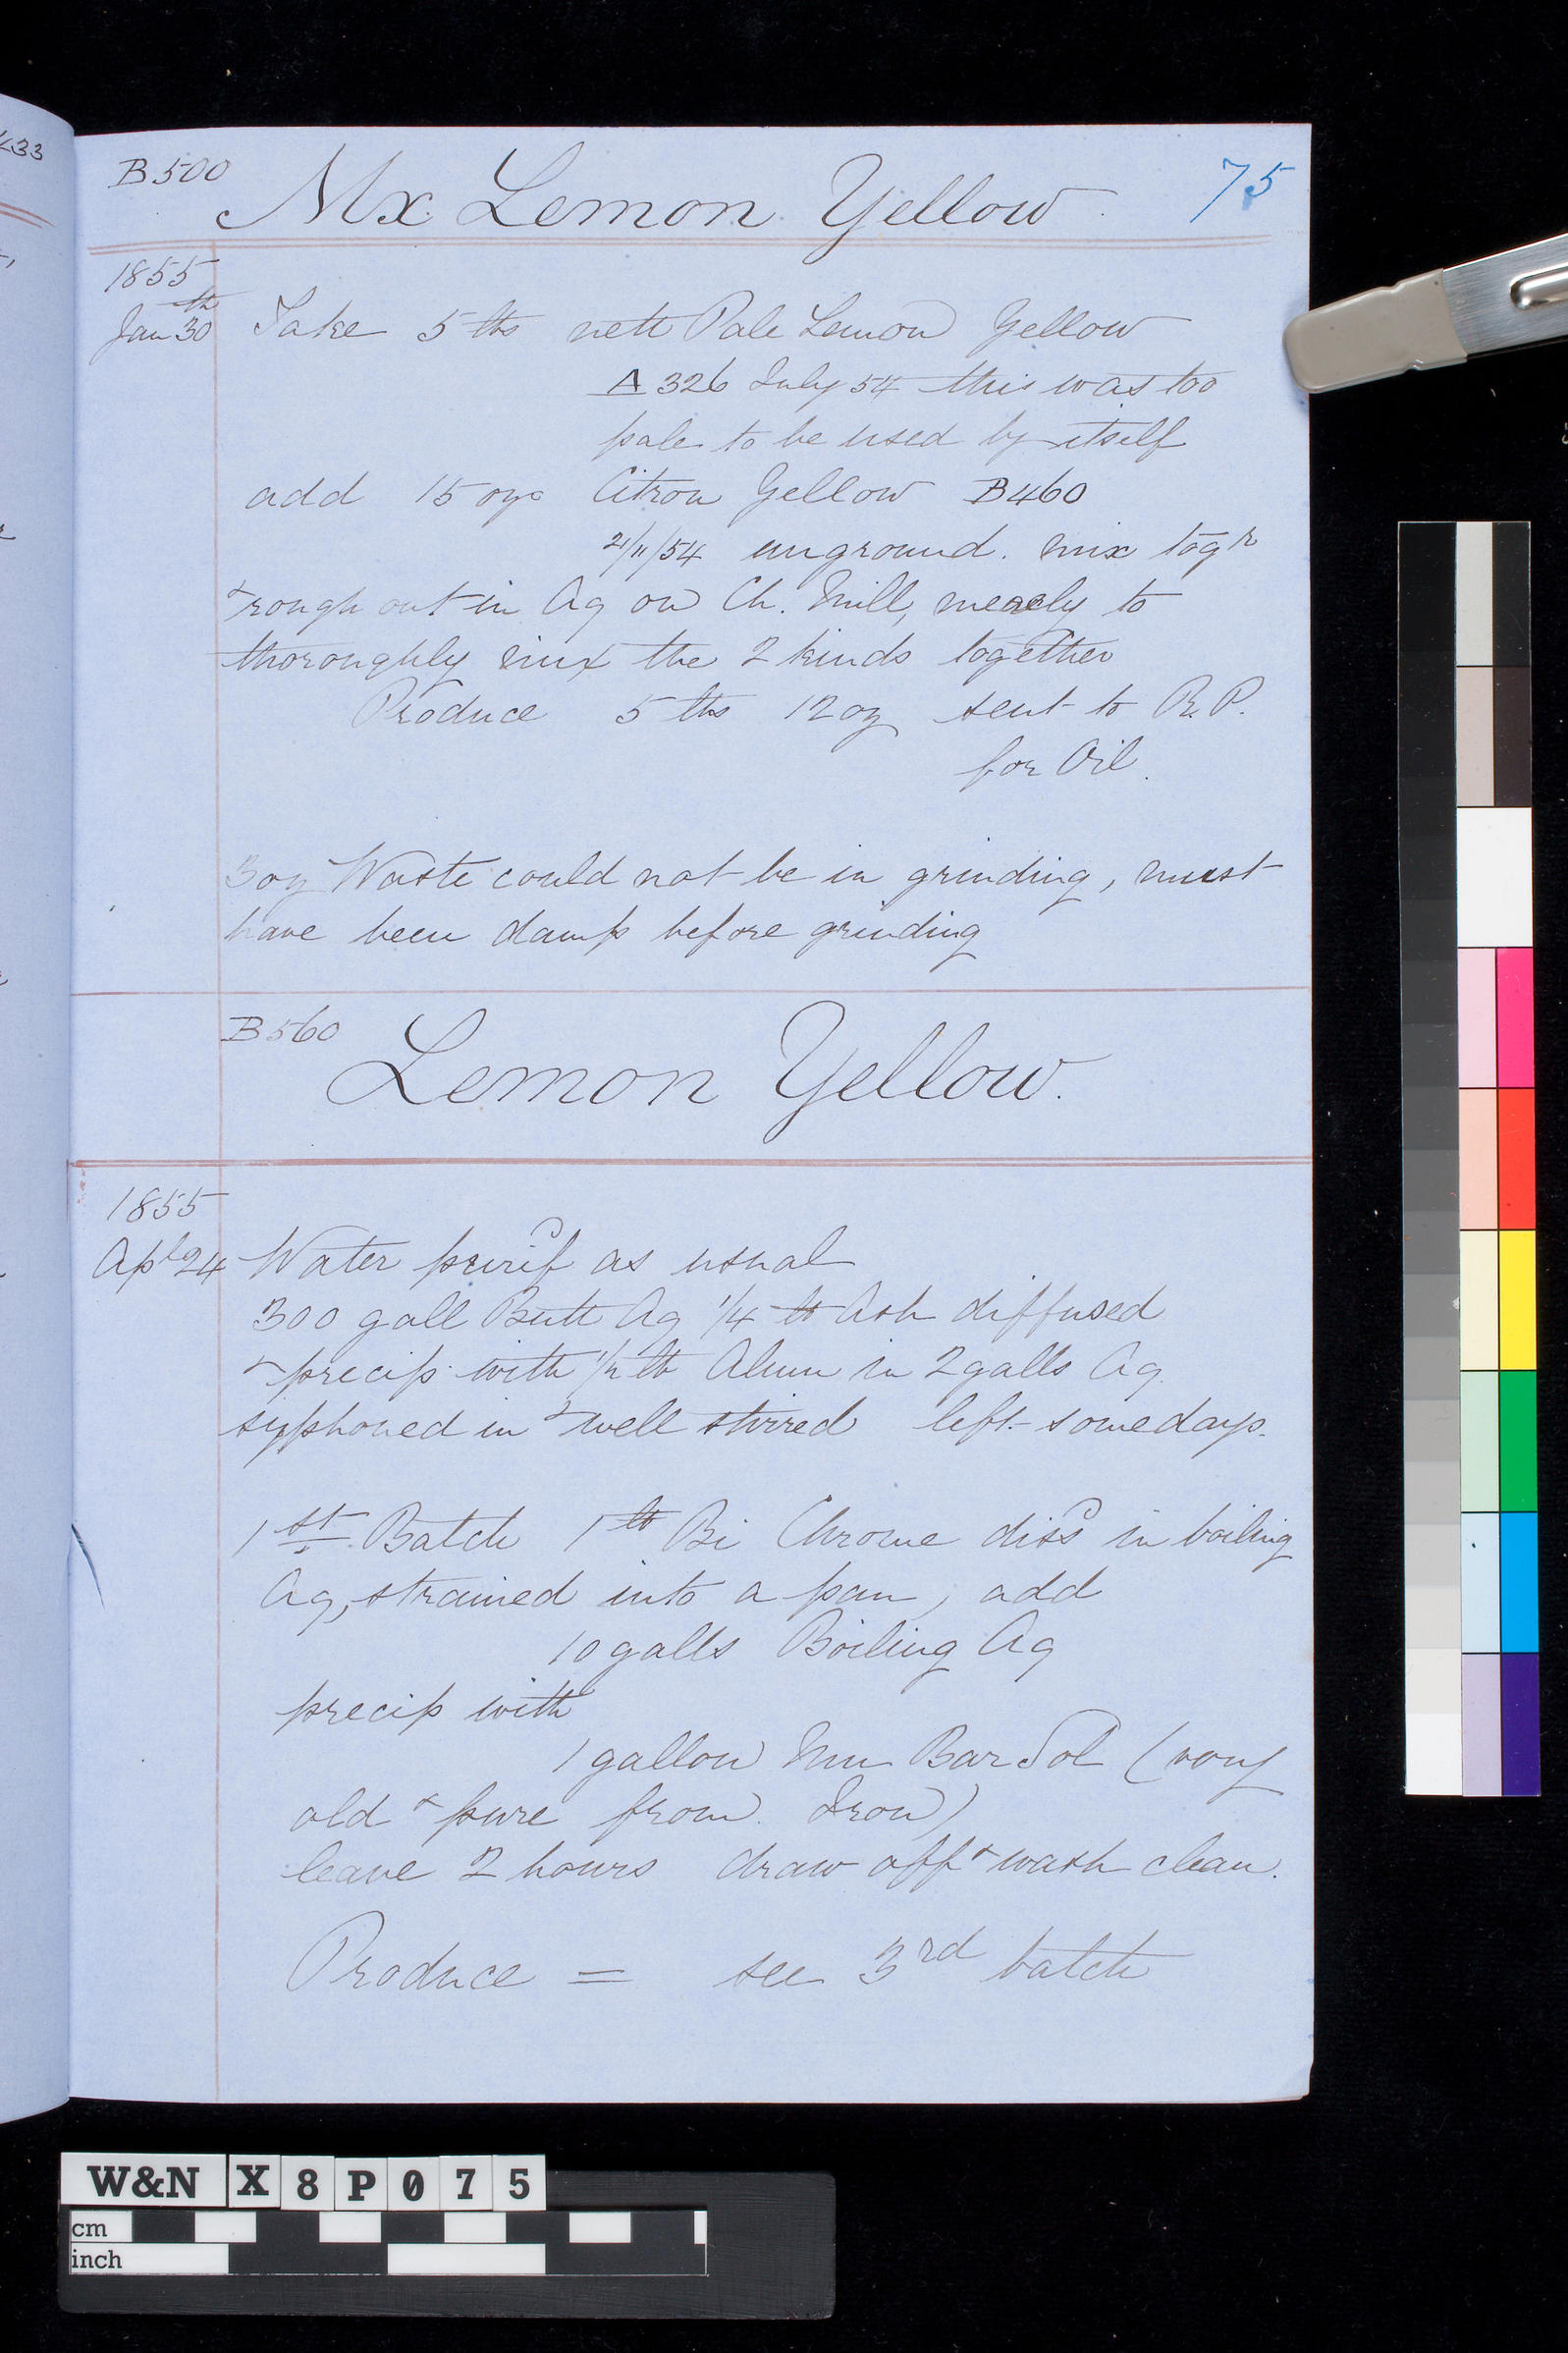 433
B500
Mx Lemon Yellow.
75
1855
Jan 30th
Take 5 lbs nett Pale Lemon Yellow
A 326 July 54 this was too
pale to be used by itself
add 15 ozs Citron Yellow B460
2/11/54 unground. mix togr
& rough out in Aq on Ch. Mill, merely to
thoroughly mix the 2 kinds together
Produce 5 lbs 12 oz sent to R.P.
for Oil.
3 oz Waste could not be in grinding, must
have been damp before grinding
B560
Lemon Yellow.
1855
Apl 24
Water purifd as usual
300 gall Butt Aq 1/4 lb Ash diffused
& precip. with 1/2 lb Alum in 2 galls Aq.
syphoned in & well stirred left some days.
1st Batch 1 lb Bi Chrome dissd in boiling
Aq, strained into a pan, add
10 galls Boiling Aq
precip with
1 gallon Mu Bar Sol (very
old & pure from Iron)
leave 2 hours draw off & wash clean.
Produce = see 3rd batch
W&N X 8 P 0 7 5
cm
inch